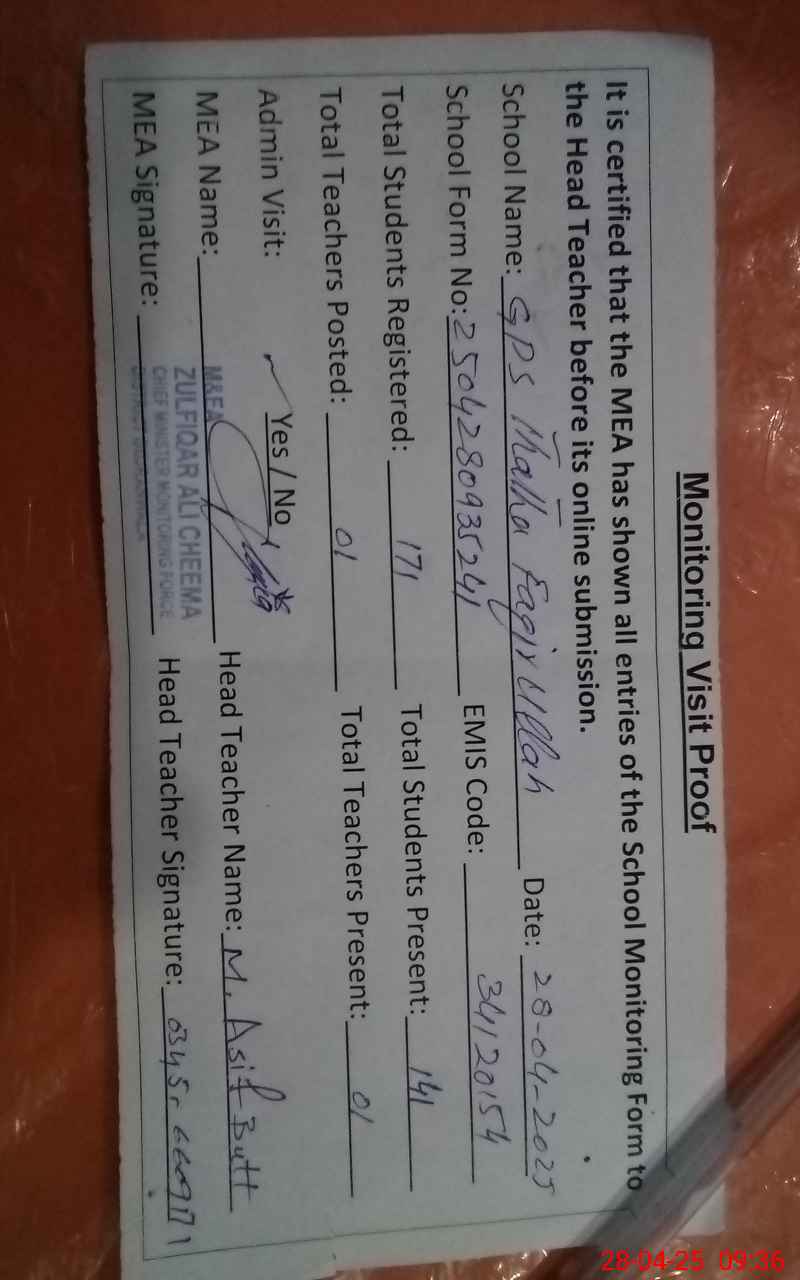 Monitoring Visit Proof
It is certified that the MEA has shown all entries of the School Monitoring Form to
the Head Teacher before its online submission.
School Name: GPS Thatta Faqir Ullah Date: 28-04-2025
School Form No: 2504280935241 EMIS Code: 34120154
Total Students Registered: 171 Total Students Present: 141
Total Teachers Posted: 01 Total Teachers Present: 01
Admin Visit: Yes / No
MEA Name: Head Teacher Name: M. Asif Butt
M&EA
ZULFIQAR ALI CHEEMA
CHIEF MINISTER MONITORING FORCE
MEA Signature: Head Teacher Signature:
28-04-25 09:36